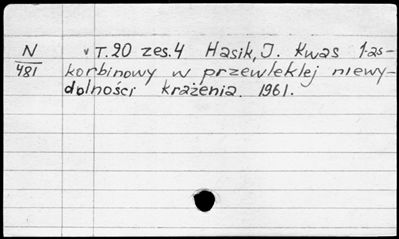 N T.20 zes.4 Hasik, J. Kwas 1-as-
481 korbinowy w przewlekłej niewy-
dolności krążenia. 1961.